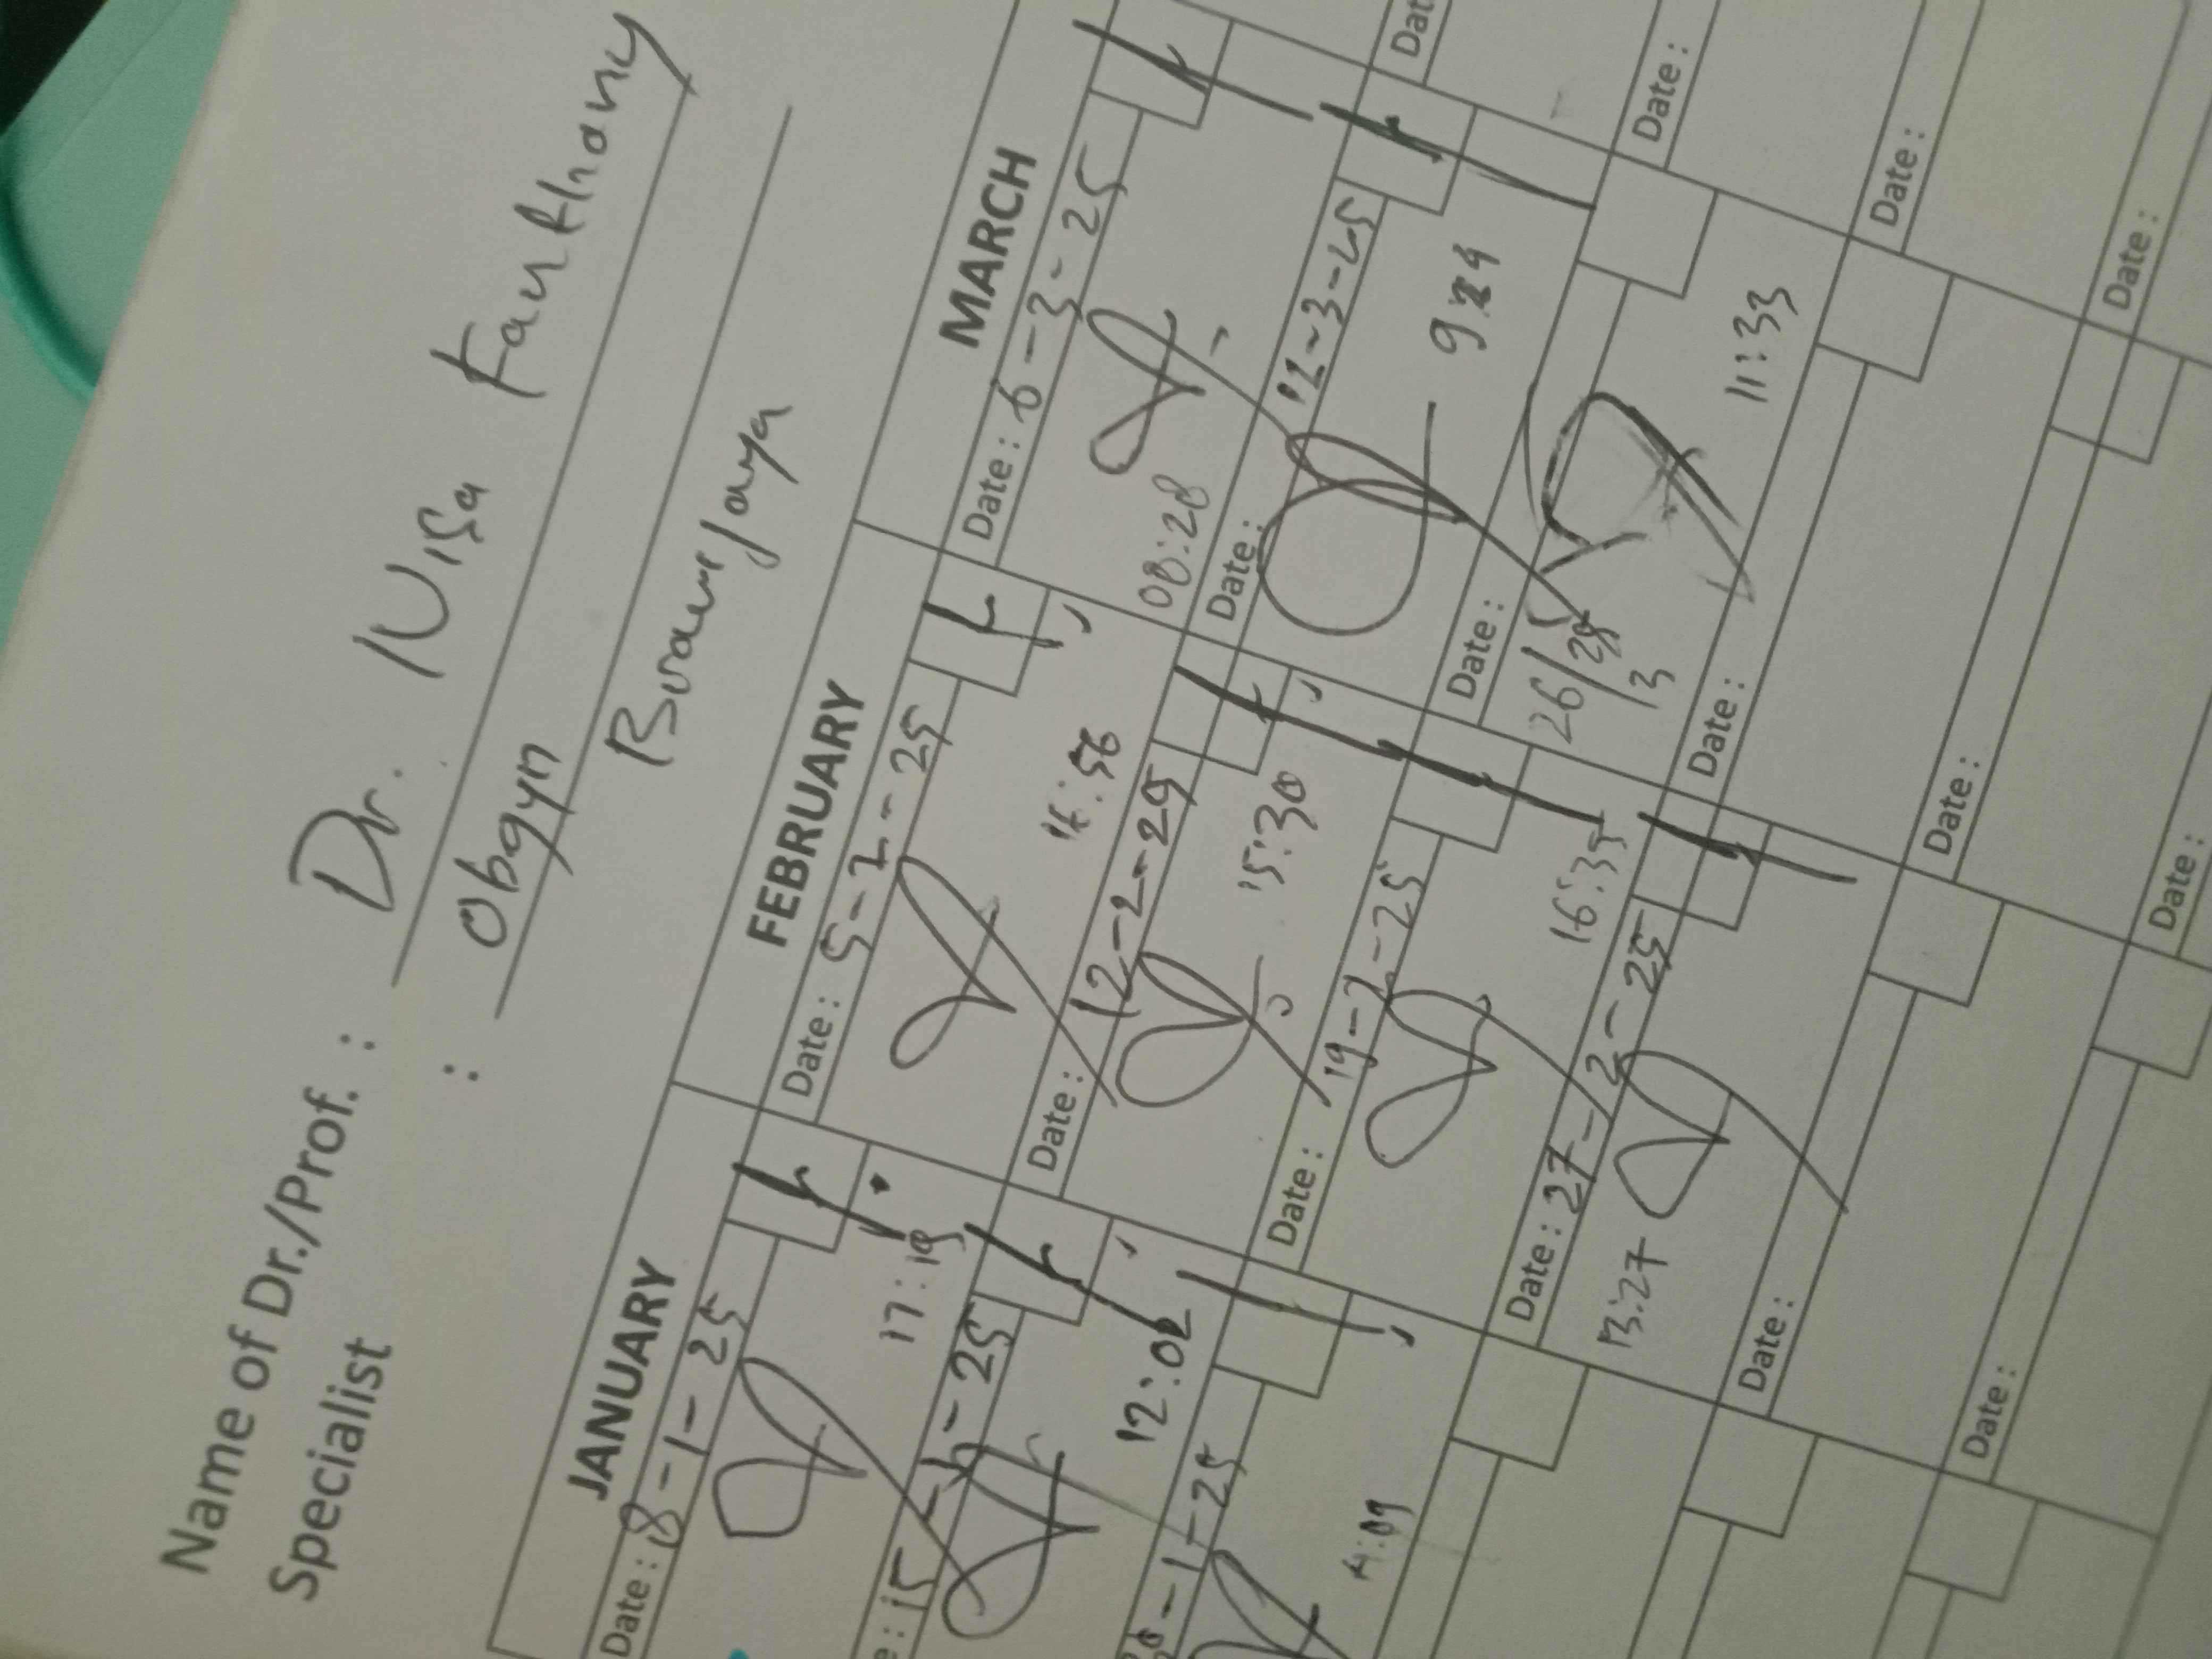 Name of Dr./Prof. : Dr. Nisa Fauthony
Specialist : Obgyn
Brawijaya
JANUARY FEBRUARY MARCH
Date : 8-1-25 Date : 5-2-25 Date : 6-3-25
17:19 16:56 08:28
15-1-25 Date : 12-2-25 Date : 12-3-25 Date :
12:02 15:30
-1-25 Date : 19-2-25 Date : Date :
16:35 26/3 11:33
Date : 27-2-25 Date : Date :
13:27
Date : Date : Date :
Date : Date :